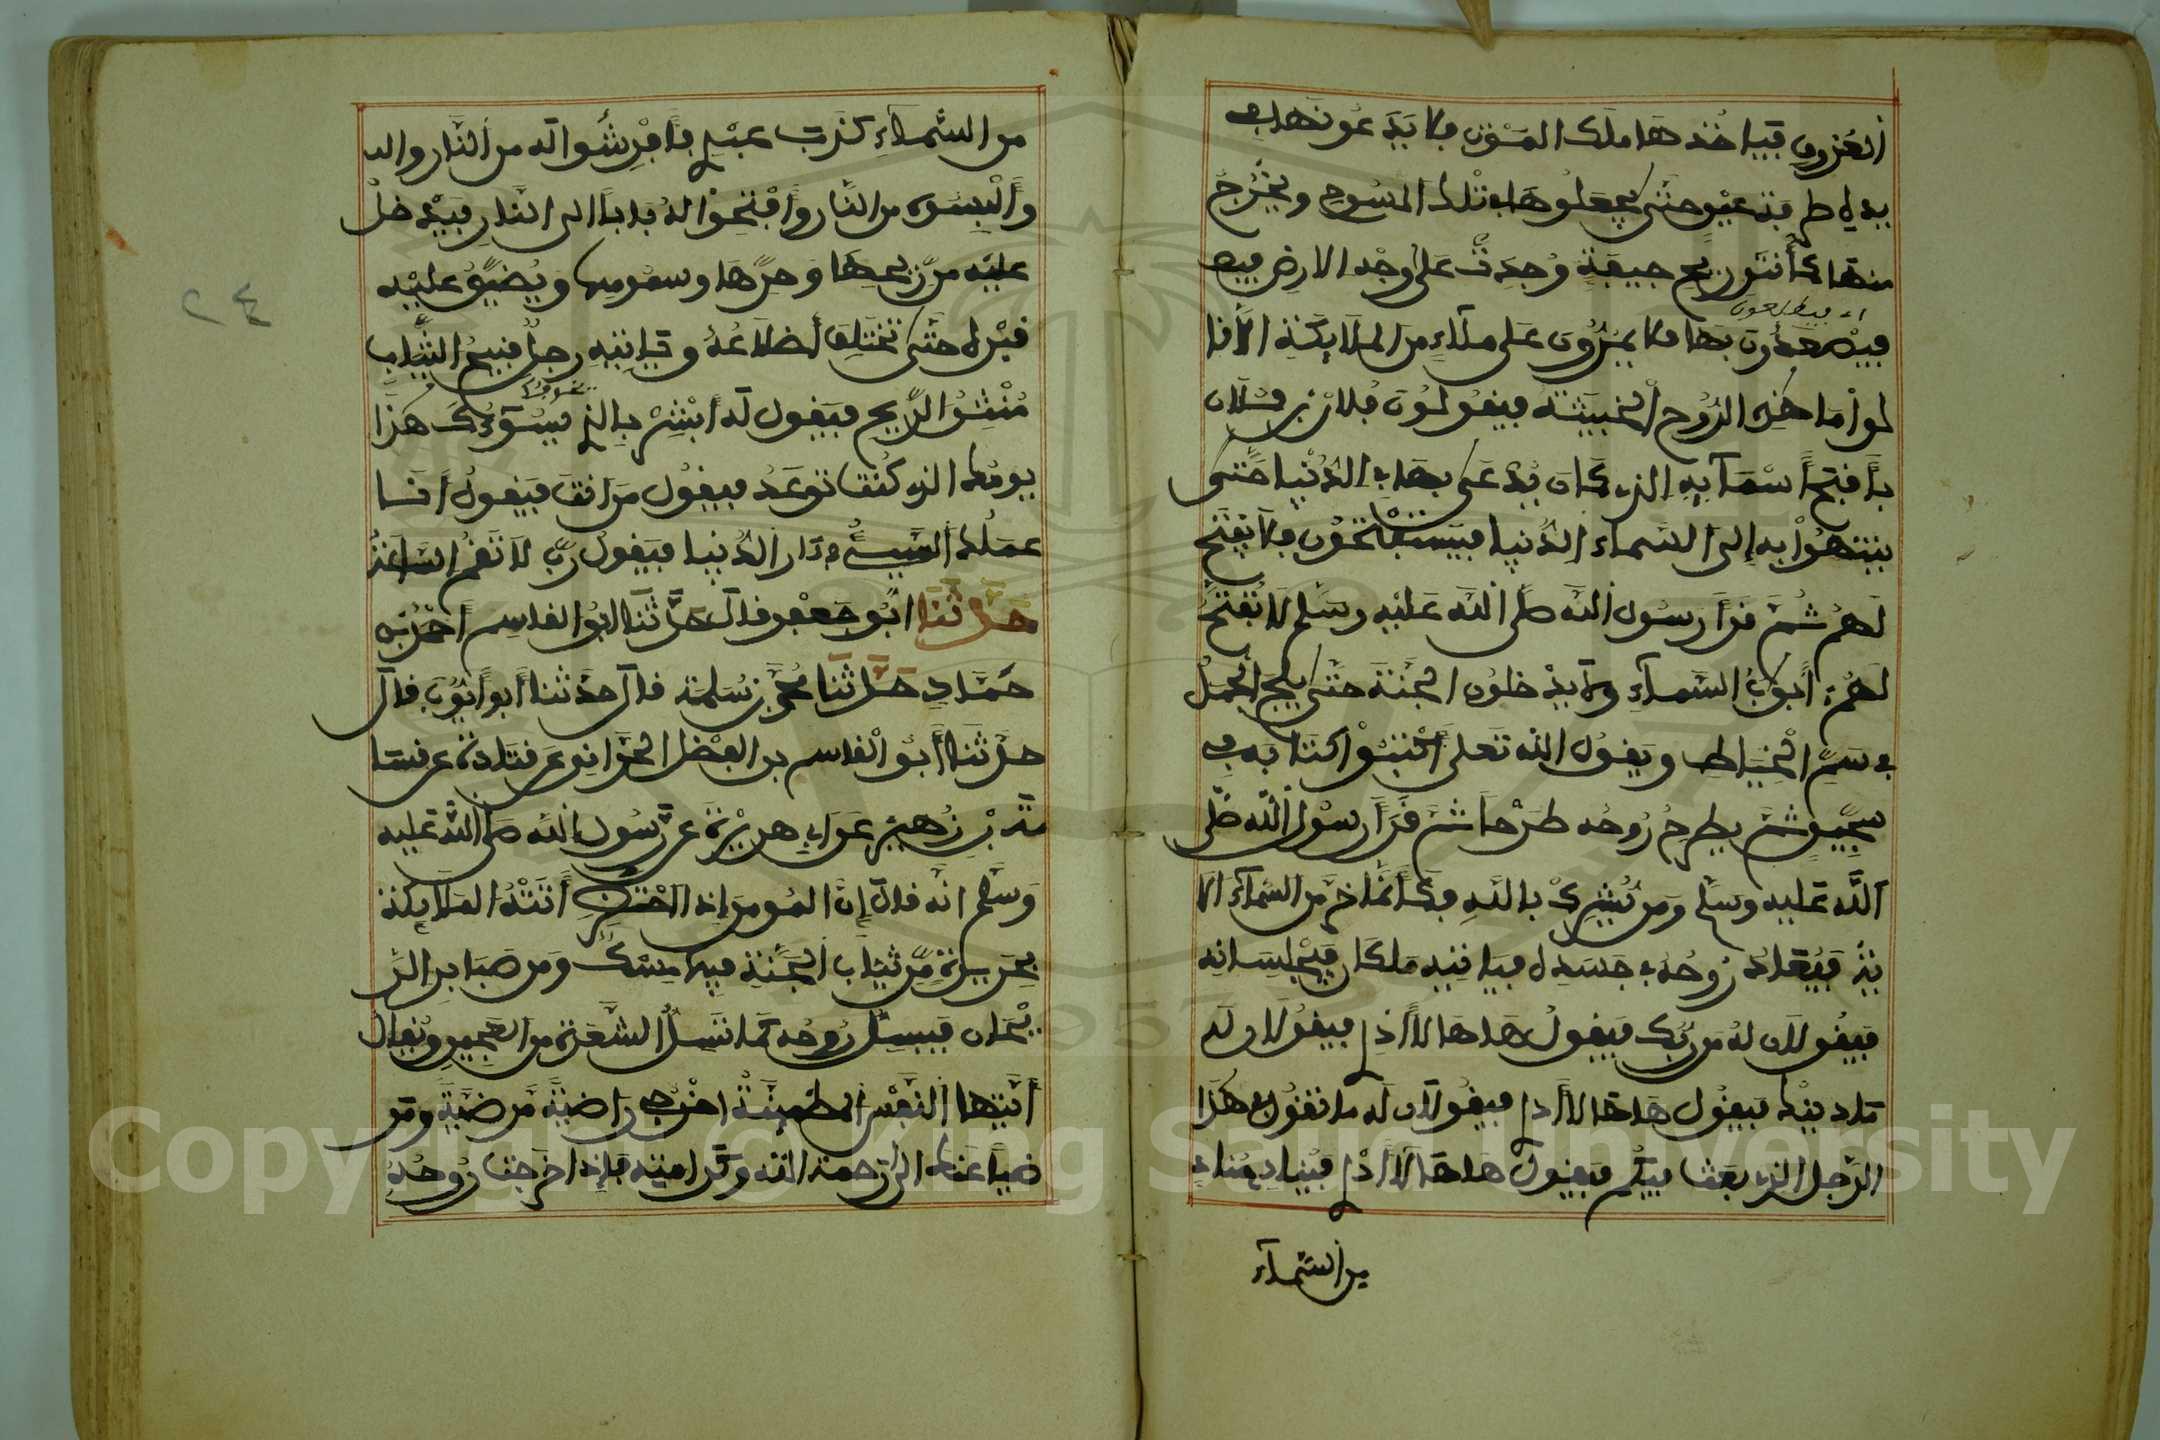 العروق فياخذها ملك الموت فلا يدعونها في
يده طرفة عين حتى يجعلوها في تلك المسوح ويخرج
منها كأنتن ريح جيفة وجدت على وجه الارض فيص
اي فيطلعون
فيصعدون بها فلا يمرون على ملاء من الملايكة الا قا
لوا ما هذه الروح الخبيثة فيقولون فلان بن فلان
بأقبح أسمآيه الذي كان يدعى بها في الدنيا حتى
ينتهوا به إلى السماء الدنيا فيستفتحون فلا يفتح
لهم ثم قرأ رسول الله صلى الله عليه وسلم لا تفتح
لهم أبواب السمآء ولا يدخلون الجنة حتى يلج الجمل
في سم الخياط ويقول الله تعلى أكتبوا كتابه في
سجين ثم يطرح روحه طرحا ثم قرأ رسول الله صلى
الله عليه وسلم ومن يشرك بالله فكأنما خر من السمآء الا
ية فيعاد روحه في جسده فياتيه ملكان فيجلسانه
فيقولان له من ربك فيقول هاها لا أدري فيقولان له
ما دينك فيقول هاها لا أدري فيقولان له ما تقول في هذا
الرجل الذي بعث فيكم فيقول هاها لا أدري فينادي مناد
من السمآء
من السمآء كذب عبدي فأفرشوا له من النار والب
وألبسوه من النار وأفتحوا له بابا الى النار فيدخل
عليه من ريحها وحرها وسمومها ويضيق عليه
قبره حتى تختلف أضلاعه وياتيه رجل قبيح الثياب
منتن الريح فيقول له أبشر بالذي يسوؤك هذا
يومك الذي كنت توعد فيقول من انت فيقول أنا
عملك السيئ في دار الدنيا فيقول رب لا تقم الساعة
حدثنا ابو جعفر قال حدثنا ابو القاسم أحمد بن
حماد حدثنا محمد بن سلمة قال حدثنا أبو أيوب قال
حدثنا أبو القاسم بن الفضل الحراني عن قتادة عن قسا
مة بن زهير عن ابي هريرة عن رسول الله صلى الله عليه
وسلم انه قال إن المومن إذا احتضر أتته الملايكة
بحريرة من ثياب الجنة فيها مسك ومن ضباير الر
يحان فيسل روحه كما تسل الشعرة من العجين ويقال
أيتها النفس المطمئنة اخرجي راضية مرضية ومر
ضيا عنك الى رحمة الله وكرامته فإذا خرجت روحه
٢٤
Copyright © King Saud University
1957